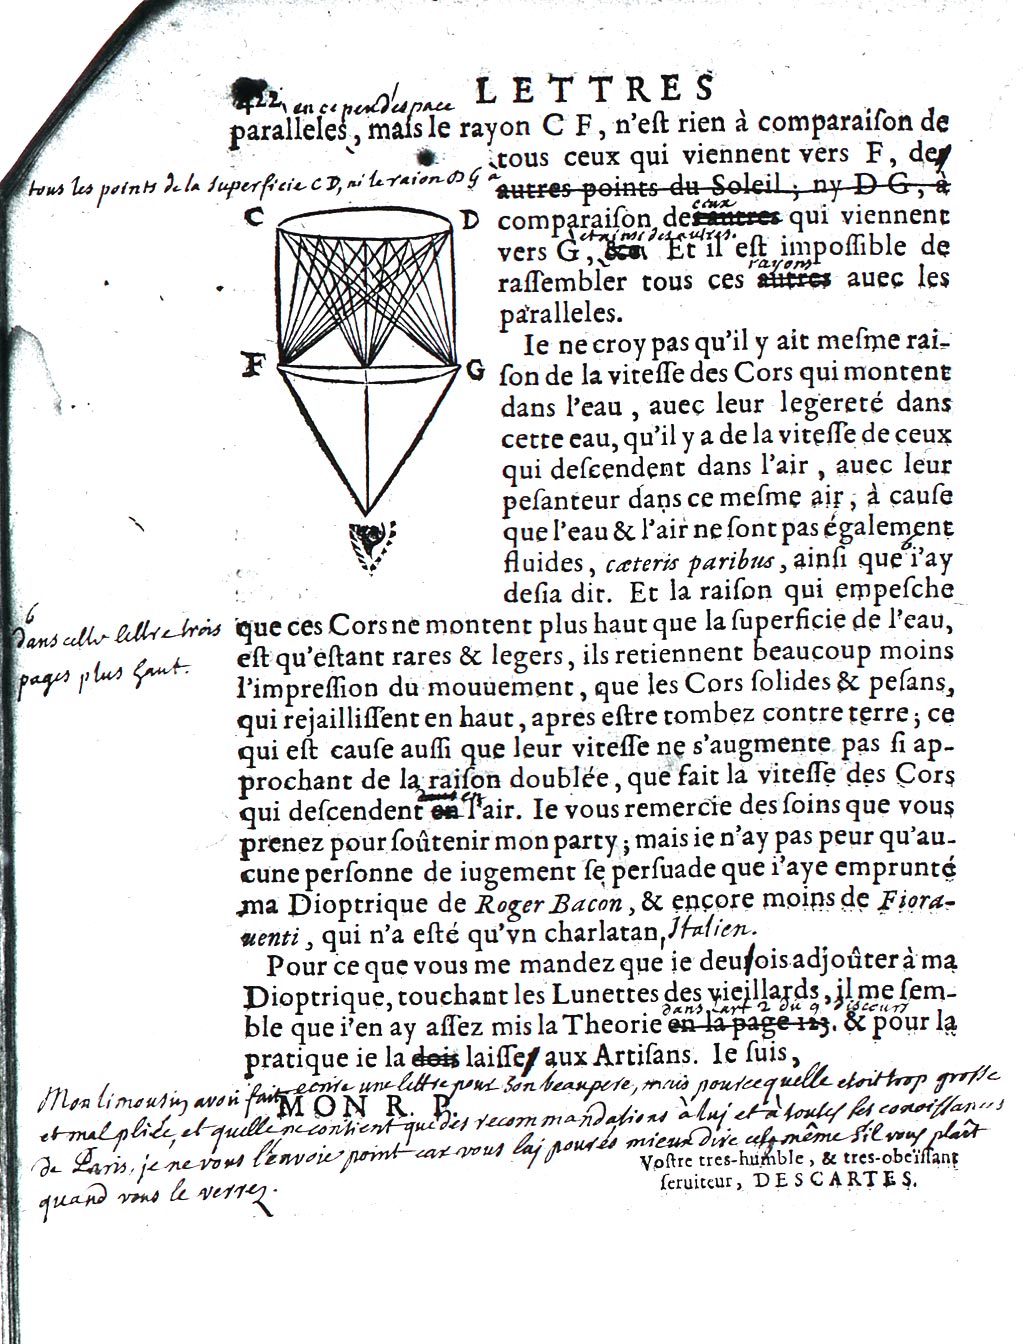 422 LETTRES
en ce peu d'espace
paralleles, mais le rayon C F, n'eſt rien à comparaiſon de
tous ceux qui viennent vers F, de
tous les points de la superficie C D, ni le raion D G à
autres points du Soleil ; ny D G, à
ceux
comparaiſon des autres qui viennent
et ainsi des autres.
vers G, &c. Et il eſt impoſſible de
rayons
raſſembler tous ces autres auec les
paralleles.
C D
F G
Ie ne croy pas qu'il y ait meſme rai-
ſon de la viteſſe des Cors qui montent
dans l'eau, auec leur legereté dans
cette eau, qu'il y a de la viteſſe de ceux
qui deſcendent dans l'air, auec leur
peſanteur dans ce meſme air, à cauſe
que l'eau & l'air ne ſont pas également
fluides, cæteris paribus, ainſi que i'ay
deſia dit. Et la raiſon qui empeſche
6
dans cette lettre trois
pages plus haut.
que ces Cors ne montent plus haut que la ſuperficie de l'eau,
eſt qu'eſtant rares & legers, ils retiennent beaucoup moins
l'impreſſion du mouuement, que les Cors ſolides & peſans,
qui rejailliſſent en haut, apres eſtre tombez contre terre ; ce
qui eſt cauſe auſſi que leur viteſſe ne s'augmente pas ſi ap-
prochant de la raiſon doublée, que fait la viteſſe des Cors
qui deſcendent en l'air. Ie vous remercie des ſoins que vous
prenez pour ſoûtenir mon party ; mais ie n'ay pas peur qu'au-
cune perſonne de iugement ſe perſuade que i'aye emprunté
ma Dioptrique de Roger Bacon, & encore moins de Fiora-
uenti, qui n'a eſté qu'vn charlatan, Italien.
Pour ce que vous me mandez que ie deuſois adjoûter à ma
Dioptrique, touchant les Lunettes des vieillards, il me ſem-
dans l'art 2 du 9 Discours
ble que i'en ay aſſez mis la Theorie en la page 123. & pour la
pratique ie la dois laiſſer aux Artiſans. Ie ſuis,
Mon limousin avoit fait ecrire une lettre pour son beaupere, mais pource quelle etoit trop grosse
MON R. P.
et mal pliée, et quelle ne contient que des recommandations à luj et à toutes ses conoissances
de Paris, je ne vous l'envoie point car vous luj pourés mieux dire cela même s'il vous plaît
quand vous le verrez.
Voſtre tres-humble, & tres-obeïſſant
ſeruiteur, DESCARTES.